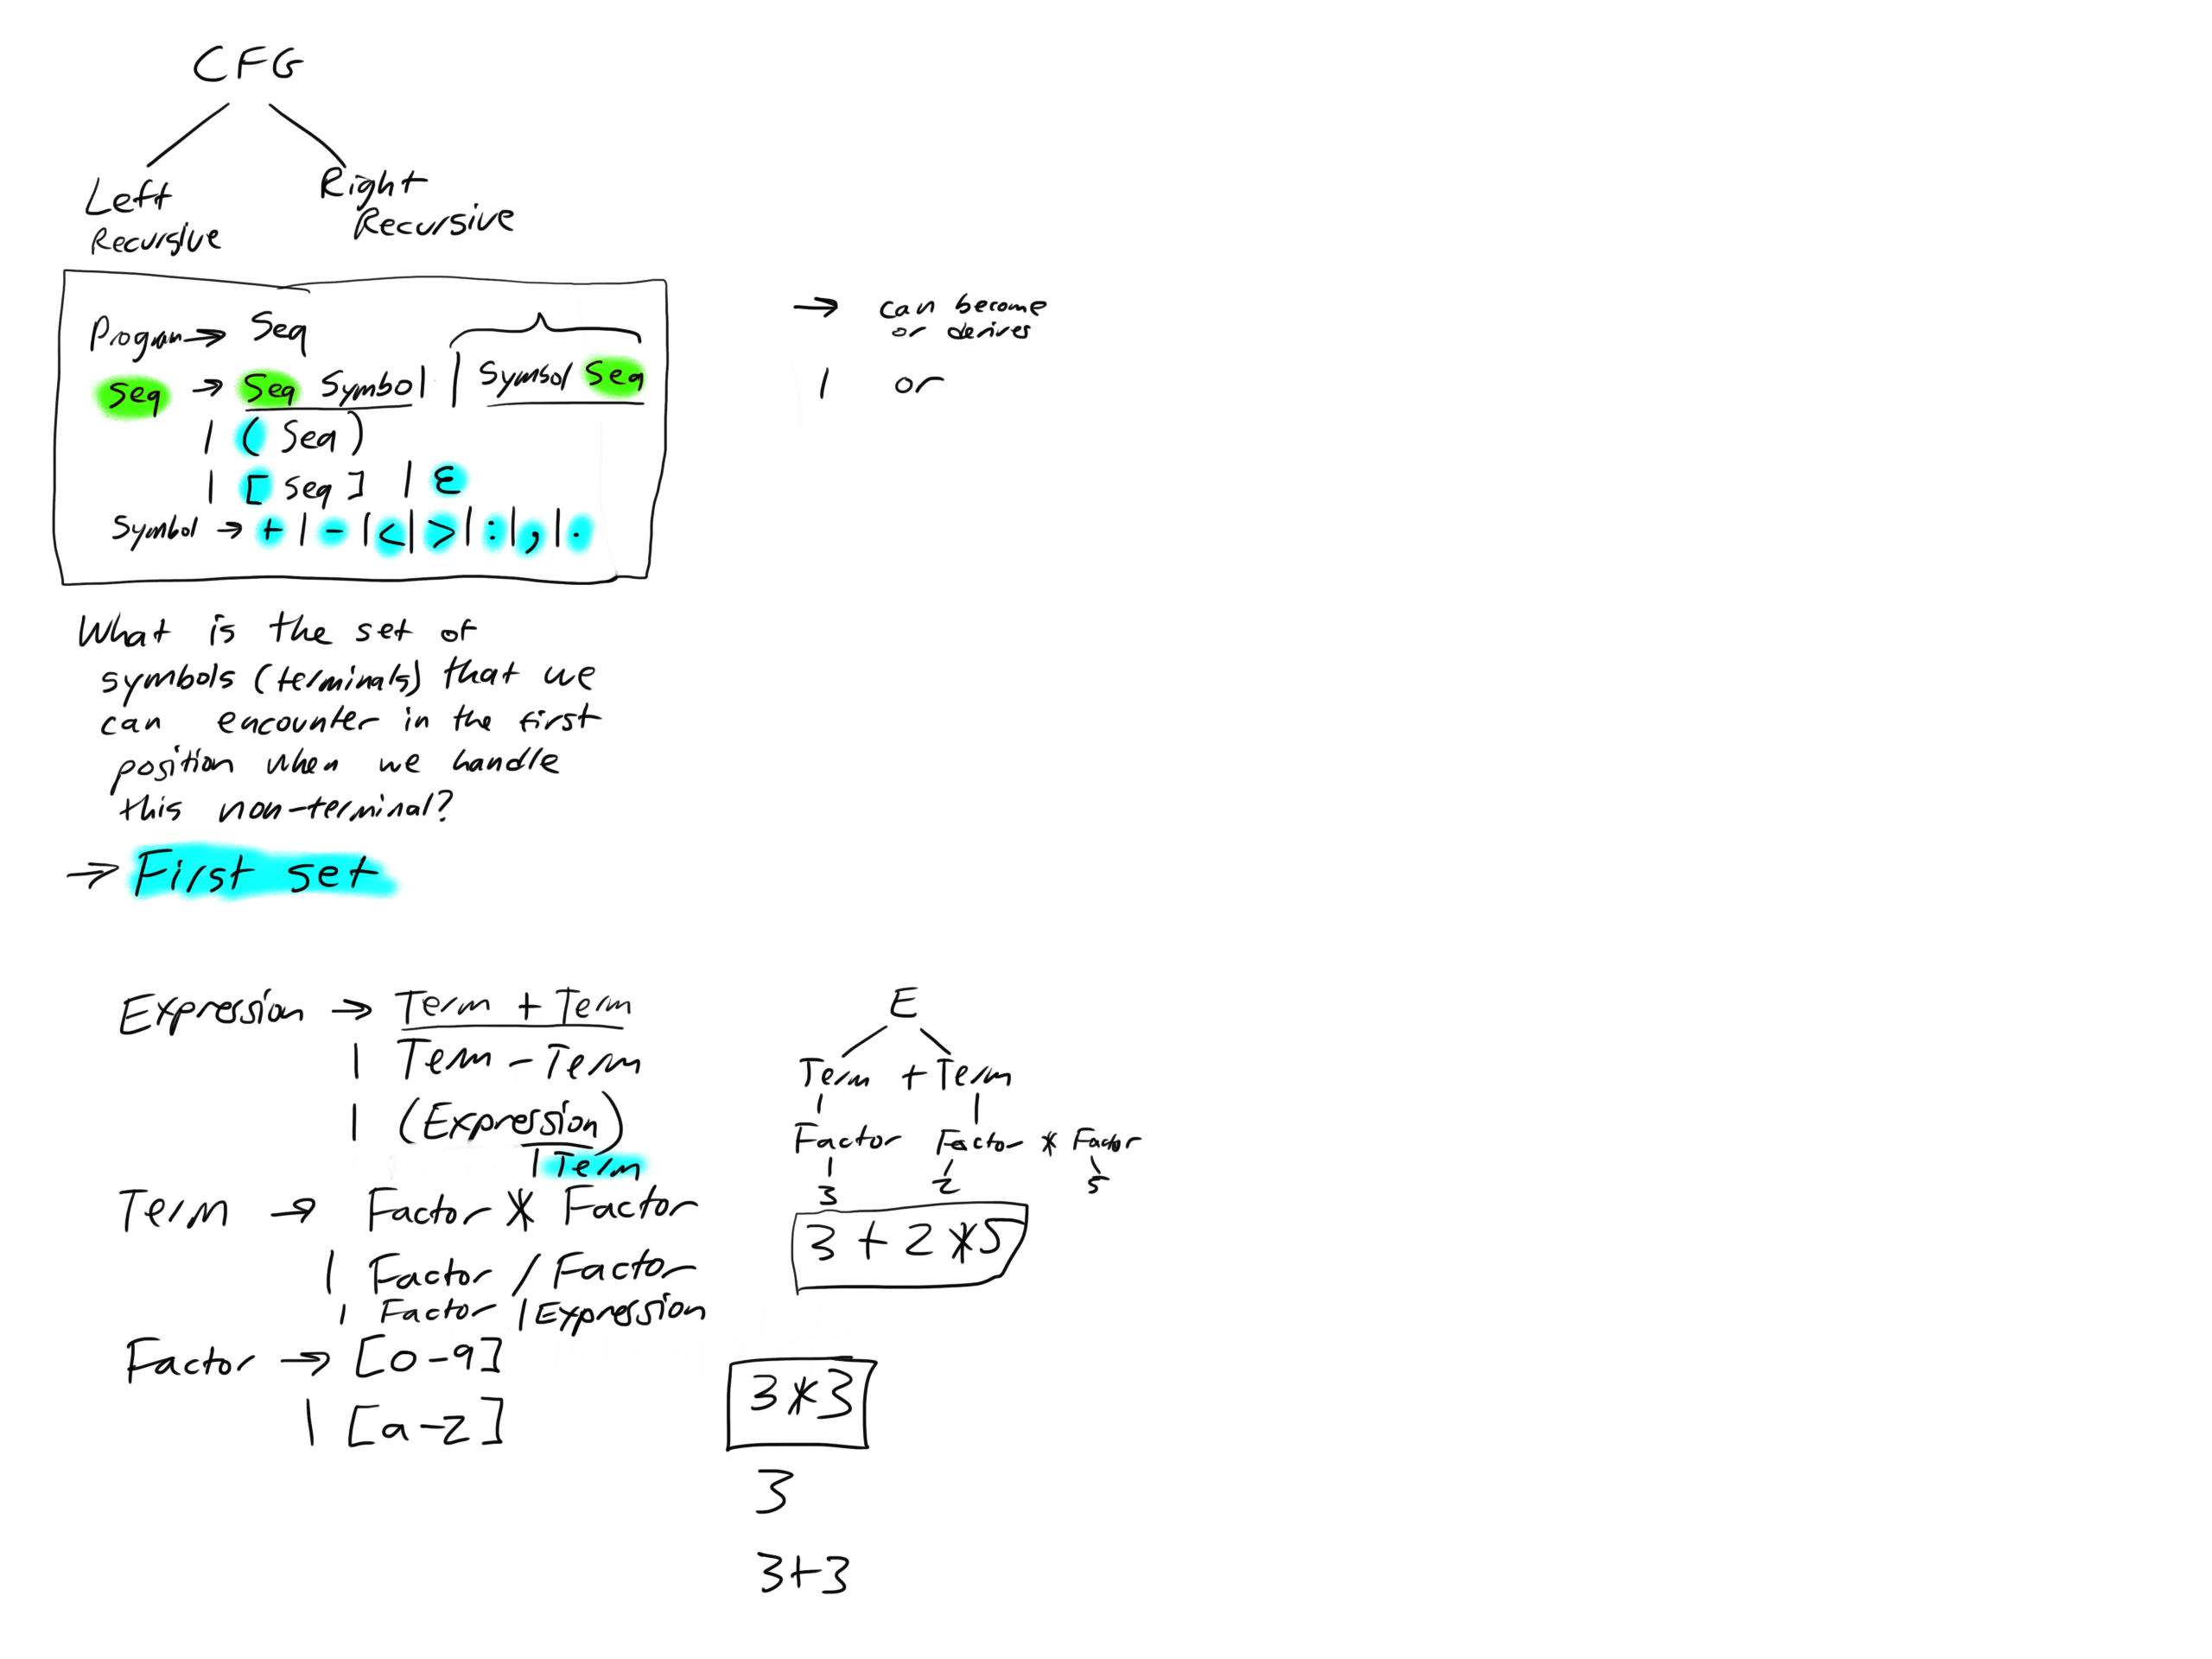 CFG
Left
Recursive
Right
Recursive
Program → Seq
Seq → Seq Symbol | Symbol Seq
| ( Seq )
| [ Seq ] | ε
Symbol → + | - | < | > | : | , | .
→ can become
or derives
| or
What is the set of
symbols (terminals) that we
can encounter in the first
position when we handle
this non-terminal?
→ First set
Expression → Term + Term
| Term - Term
| (Expression)
| Term
Term → Factor * Factor
| Factor / Factor
| Factor | Expression
Factor → [0-9]
| [a-z]
E
Term + Term
Factor Factor * Factor
3 2 5
3 + 2 * 5
3 * 3
3
3+3